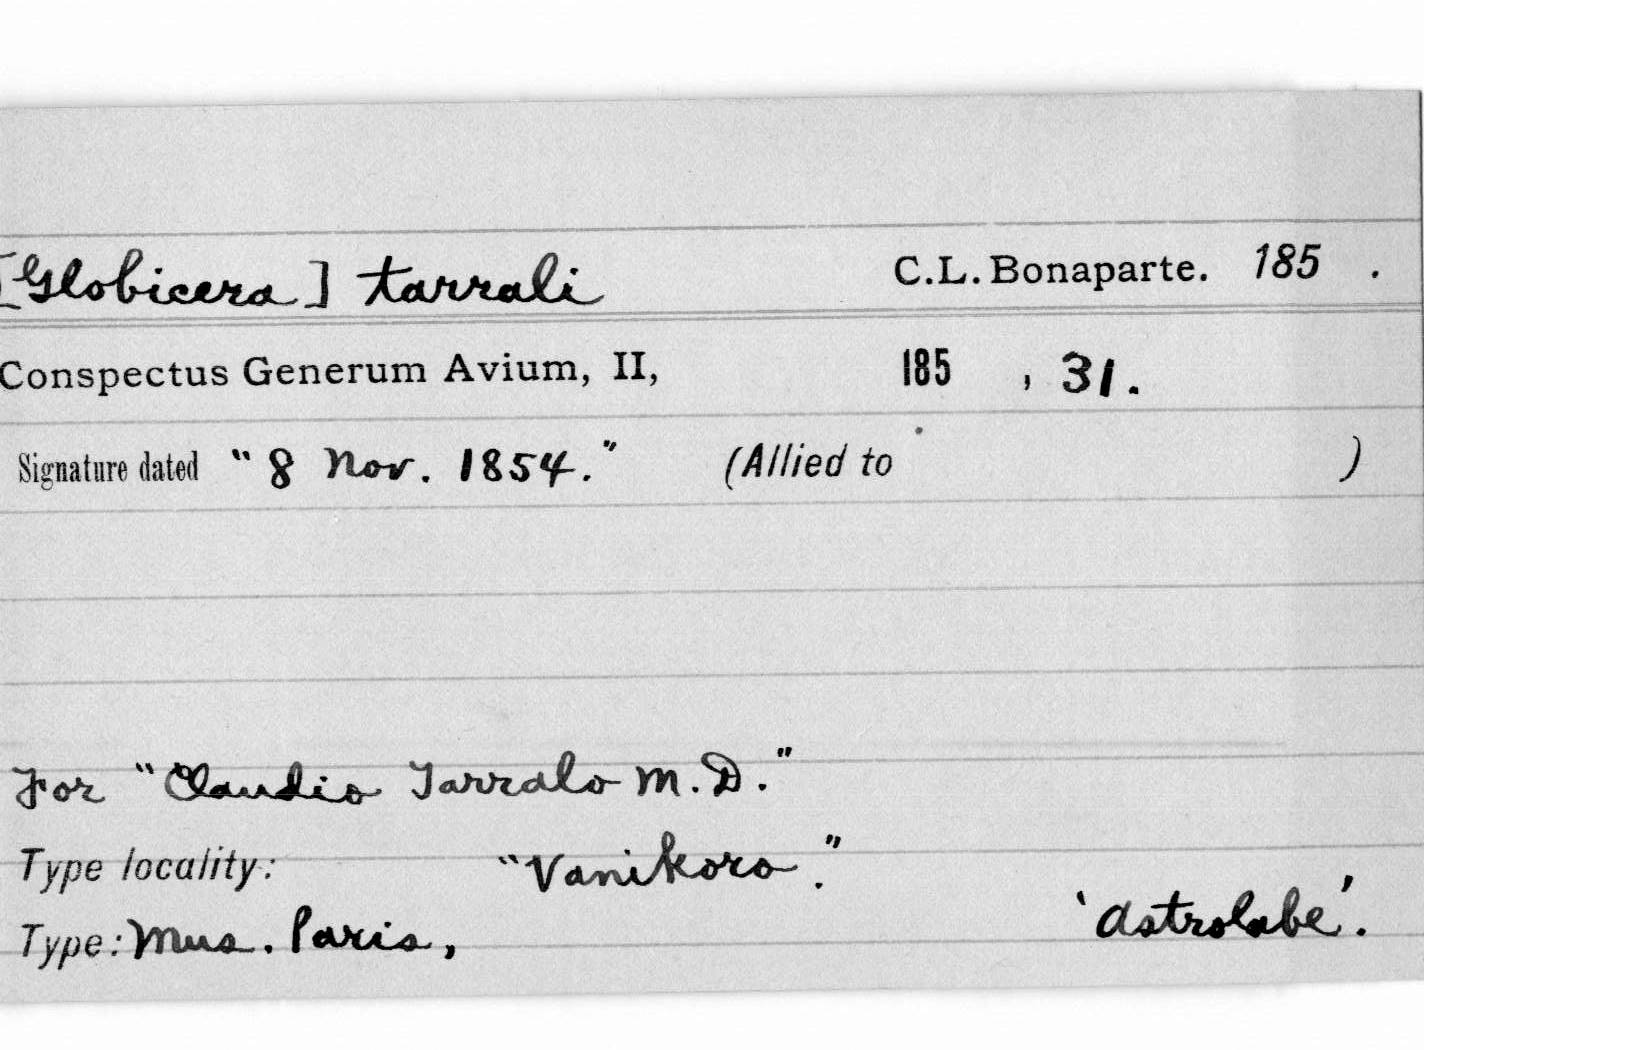 [Globicera] tarrali C.L. Bonaparte. 185 .
Conspectus Generum Avium, II, 185 , 31.
Signature dated "8 Nov. 1854." (Allied to )
For "Claudio Tarralo M.D."
Type locality: "Vanikoro."
Type: Mus. Paris, 'Astrolabe'.